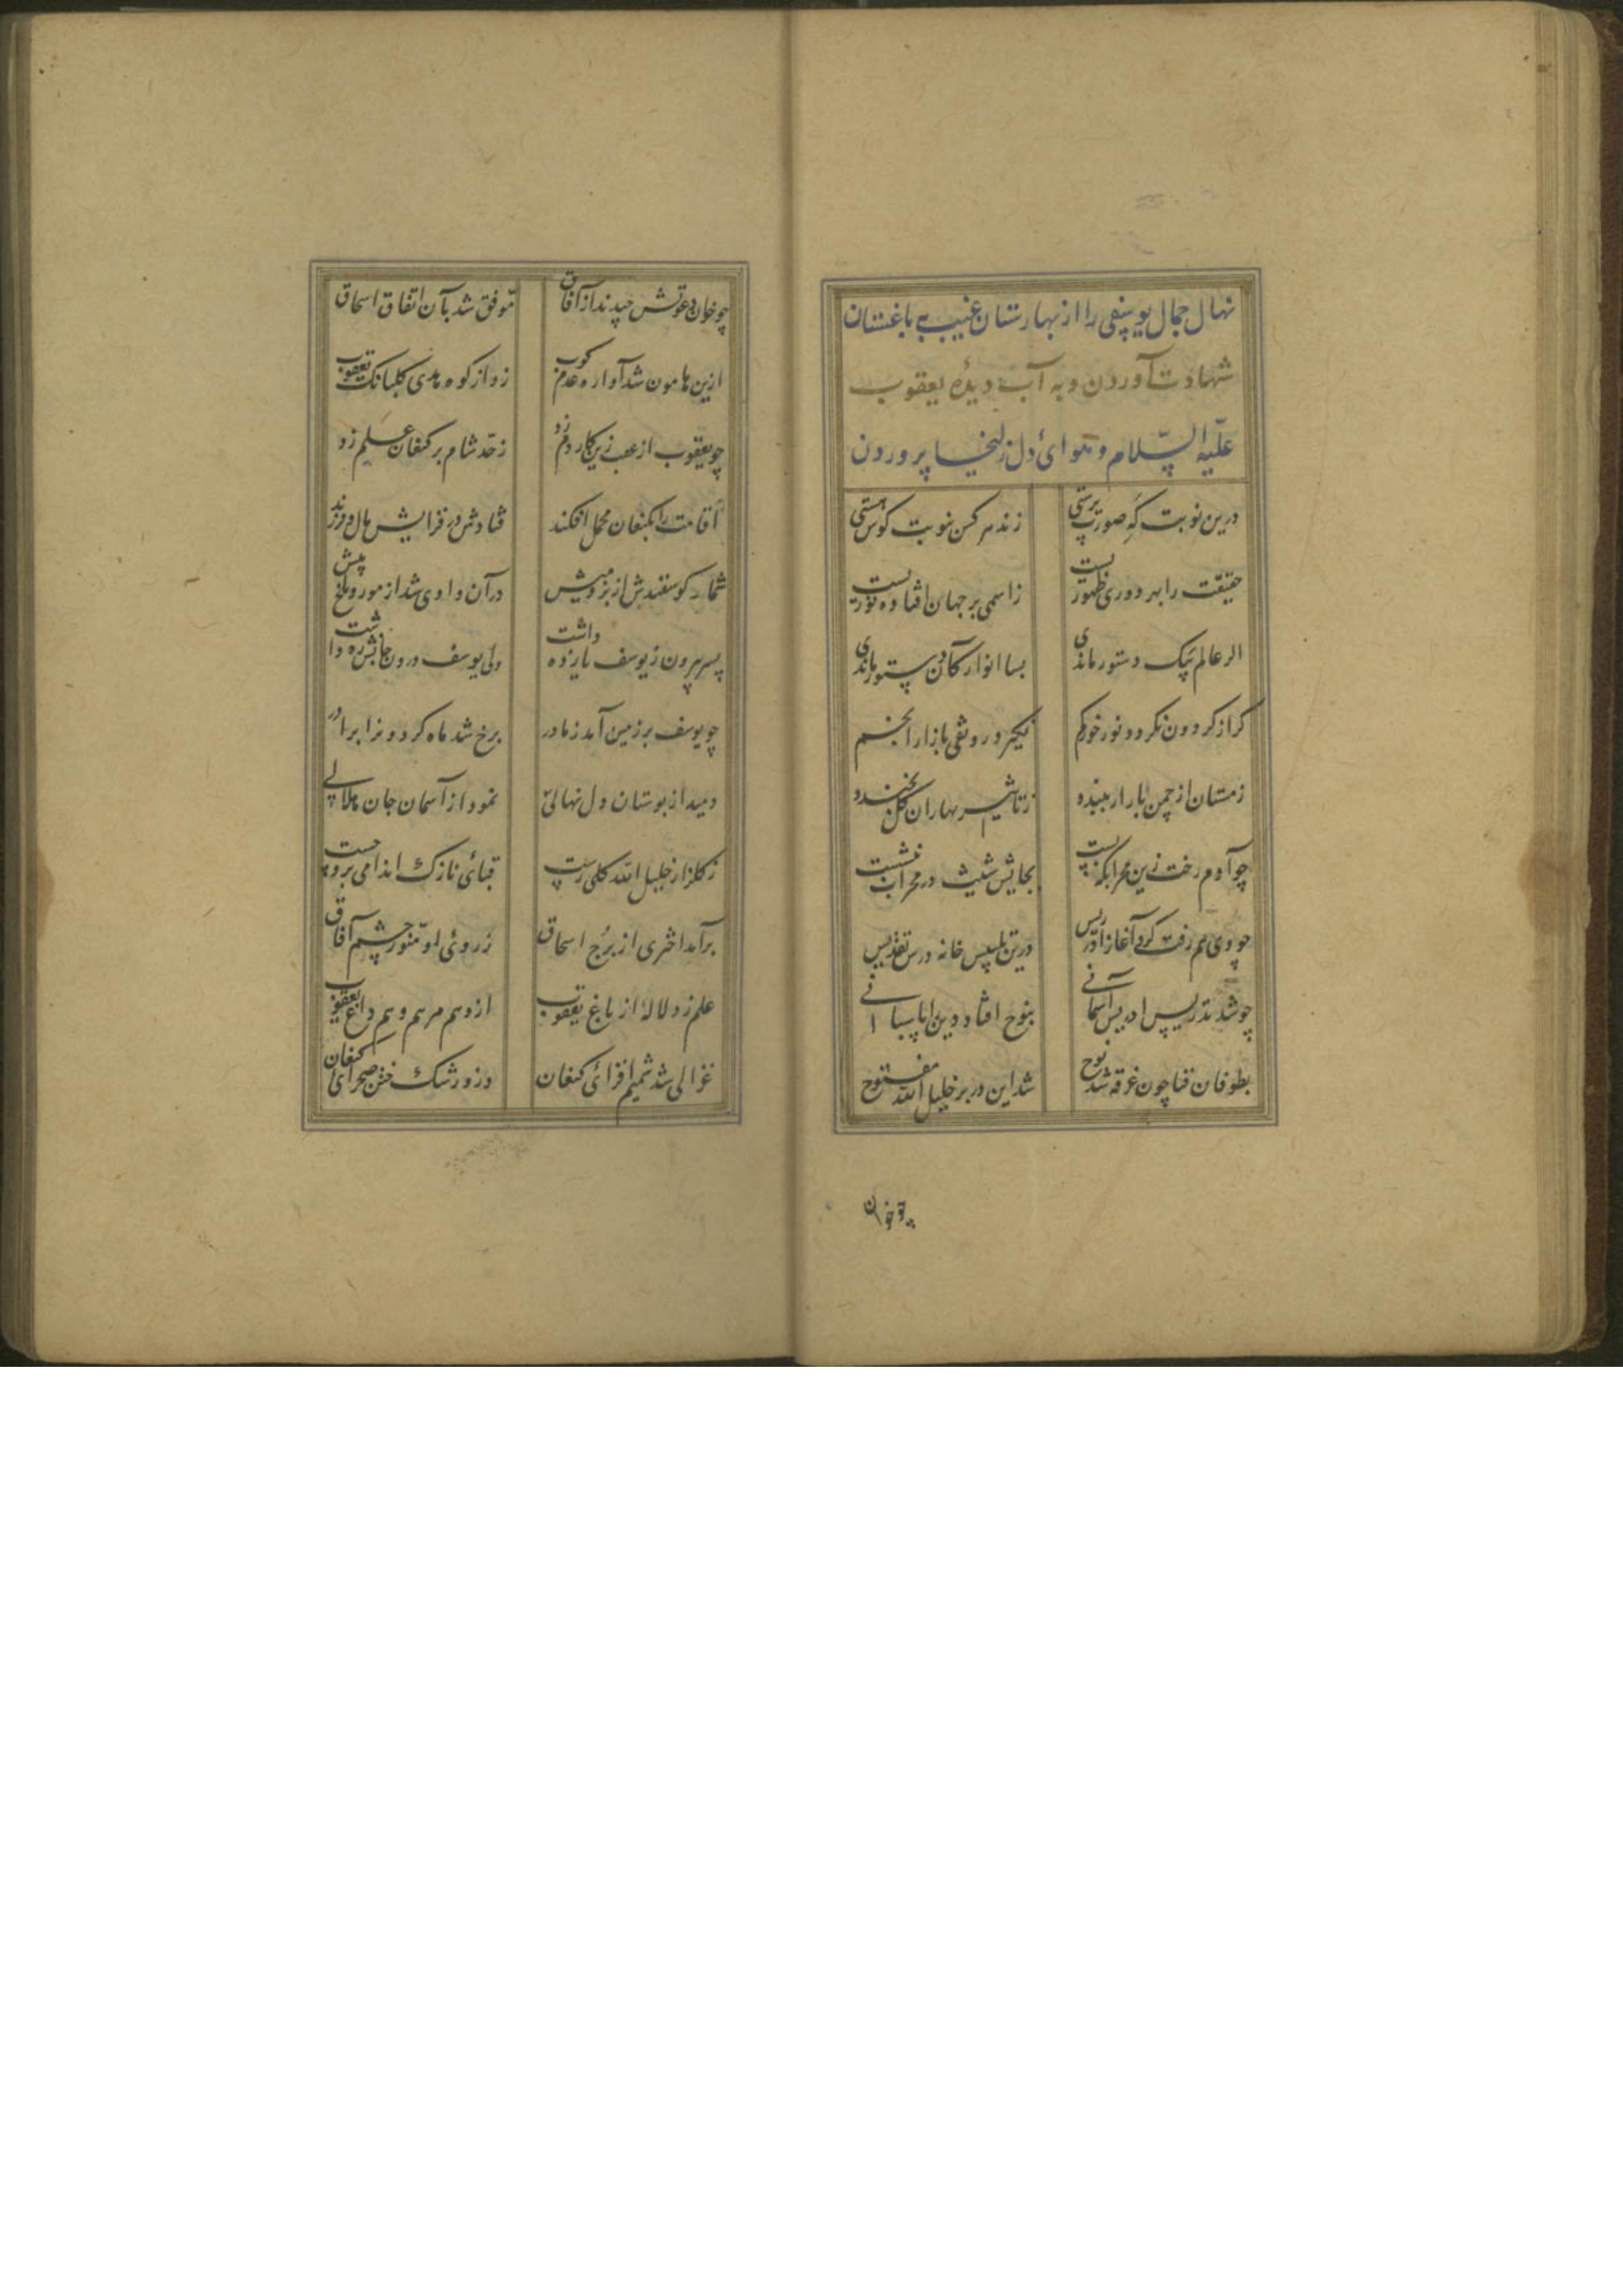 نهال جمال یوسفی را از بهارستان غیب بباغستان
شهادت آوردن و به آب دیدهٔ یعقوب
علیه السلام و هوائ دل زلیخا پروردن
درین نوبت که صورت پرستی زند هر کس نوبت کوس هستی
حقیقت را بهر دوری ظهوریست ز اسمی بر جهان افتاده نوریست
اگر عالم بیک دستور ماندی بسا انوار کان مستور ماندی
گر از گردون نگردد نور خور گم نگیرد رونقی بازار انجم
زمستان از چمن بار ار نبندد ز تاثیر بهاران گل نخندد
چو آدم رخت زین محرابگه بست بجایش شیث در محراب بنشست
چو وی هم رفت کرد آغاز ادریس درین تلبیس خانه درس تقدیس
چو شد تدریس ادریس آسمانی بنوح افتاد دین را پاسبانی
بطوفان فنا چون غرقه شد نوح شد این در بر خلیل الله مفتوح
چو خوان دعوتش چیدند از آفاق موفق شد بآن اتفاق اسحاق
ازین هامون شد او راه عدم کوب زد از کوه هدی گلبانگ یعقوب
چو یعقوب از عقب زین کار دم زد ز حد شام بر کنعان علم زد
اقامت را بکنعان محمل افکند فتادش در فزایش مال و فرزند
شمار گوسفندش از بز و میش در آن وادی شد از مور و ملخ بیش
پسر بیرون ز یوسف یازده داشت ولی یوسف درون جانش ره داشت
چو یوسف بر زمین آمد ز مادر برخ شد ماه گردون را برادر
دمید از بوستان دل نهالی نمود از آسمان جان هلالی
ز گلزار خلیل الله گلی رست قبائی نازک اندامی برو چست
برآمد اختری از برج اسحاق ز روئی او منور چشم آفاق
علم زد لالهٔ از باغ یعقوب ازو هم مرهم و هم داغ یعقوب
غزالی شد شمیم افزائ کنعان وزو رشک ختن صحرائ کنعان
چو خوان